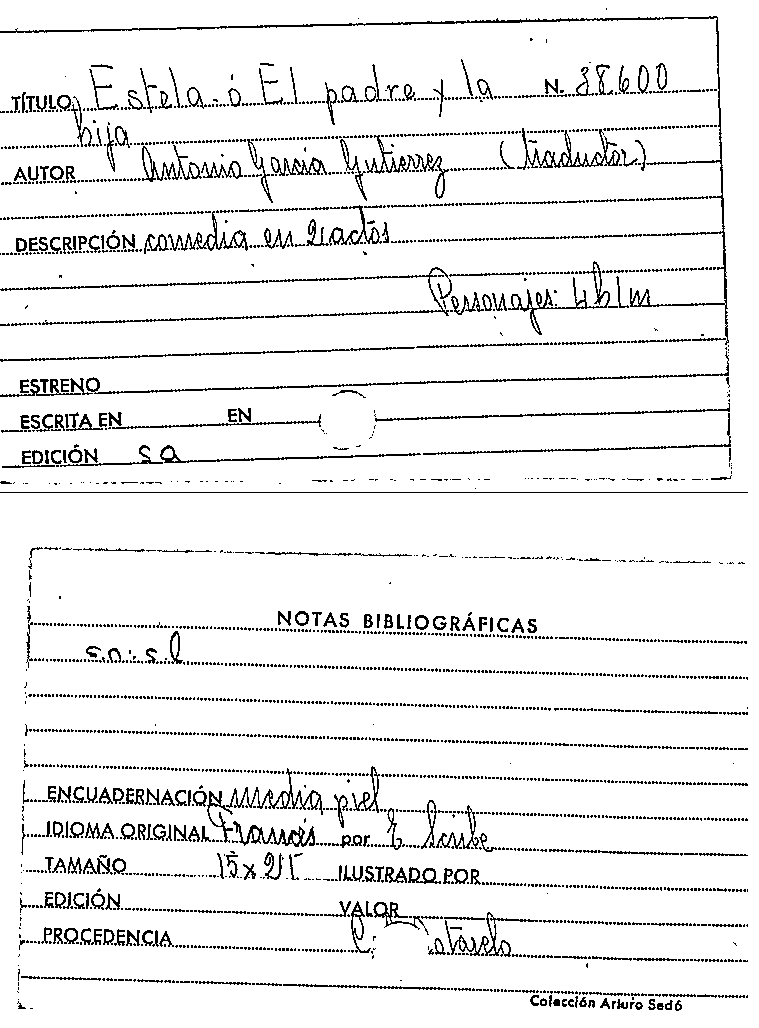 TÍTULO Estela ó El padre y la N. 38600
hija
AUTOR Antonio García Gutierrez (traductor)
DESCRIPCIÓN comedia en 2 actos
Personajes: 4h 1m
ESTRENO
ESCRITA EN EN
EDICIÓN S a
NOTAS BIBLIOGRÁFICAS
s.n. s.l
ENCUADERNACIÓN media piel
IDIOMA ORIGINAL Francés por E Scribe
TAMAÑO 15 x 21 ILUSTRADO POR
EDICIÓN VALOR
PROCEDENCIA
Colección Arturo Sedó